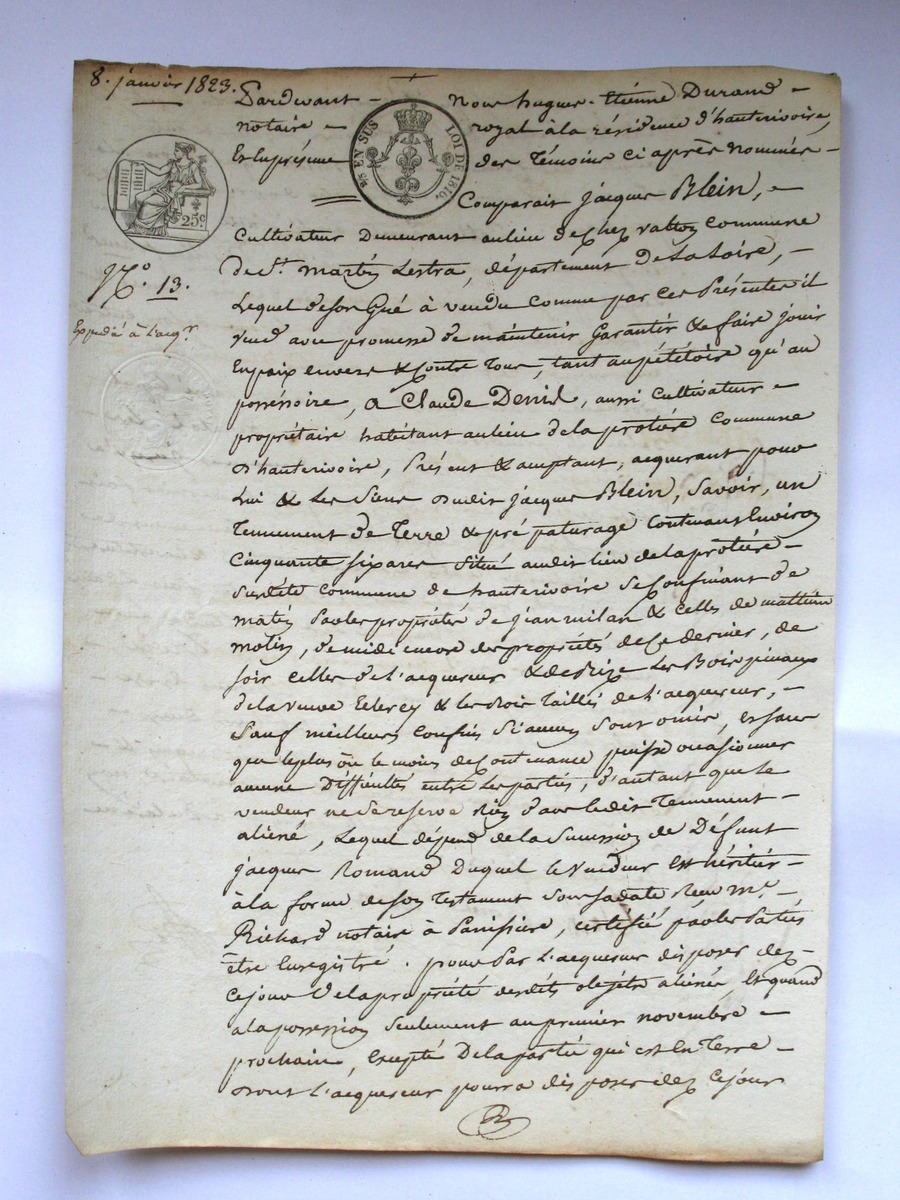 8. janvier 1823.
Pardevant - Nous hugues-Etienne Durand -
notaire - royal à la résidence d'hauterivoire,
Et En présence des témoins ci après nommés -
EN SUS LOI DE 1816.
25c.
Comparait jacques Blein, -
Cultivateur Demeurant au lieu de chez Valton Commune
N.° 13.
de St. martin Lestra, département de La Loire, -
Lequel de son Gré à vendu comme par ces Présentes il
Expédié à l'acqr.
Vend avec promesse de maintenir Garantir & faire jouir
En paix envers & Contre Tous, tant au pétitoire qu'au
possessoire, à Claude Denis, aussi Cultivateur -
propriétaire habitant au lieu de la protière Commune
d'hauterivoire, Présent & acceptant, acquerant pour
Lui & Les Siens dudit jacques Blein, Savoir, un
Tennement de Terre & pré paturage Contenant Environ
Cinquante six ares Situé audit lieu de la protière -
Susdite Commune de hauterivoire Se Confinant de
matin par les propriétés de jean milan & Celles de matthieu
motin, de midi encore des propriétés de Ce dernier, de
soir Celles de l'acquereur & de Bize Les Bois pinaux
de la veuve & les Bois Taillis de l'acquereur, -
Sauf meilleurs Confins Si aucun Sont omis, et sans
que le plus ou le moins de Contenance puisse occasionner
aucune Difficultés entre Les parties, d'autant que Le
vendeur ne Se reserve Rien dans ledit Tennement -
aliéné, Lequel dépend de la Succession de Défunt
jacques Romand Duquel le Vendeur est héritier -
à la forme de son Testament Sous Sa date Reçu me. -
Richard notaire à Panissière, certifié par les Parties
être Enregistré. pour Par L'acquereur disposer dez -
Ce jour De la propriété desdits objets aliénés, Et quand
à la possession Seulement au premier novembre -
prochain, Excepté De la partie qui est En Terre -
dont L'acquereur pourra disposer dez Ce jour